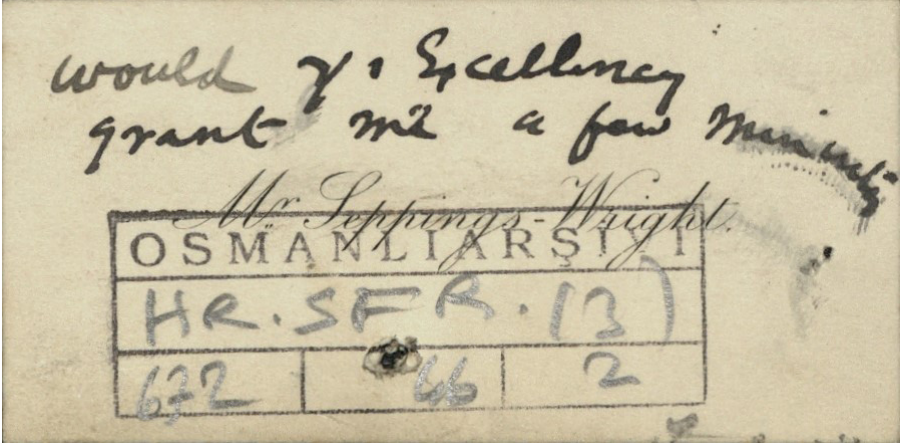 would yr Excellency
grant me a few minutes
Mr Seppings-Wright.
OSMANLI ARŞİVİ
HR. SFR. (3)
672 46 2